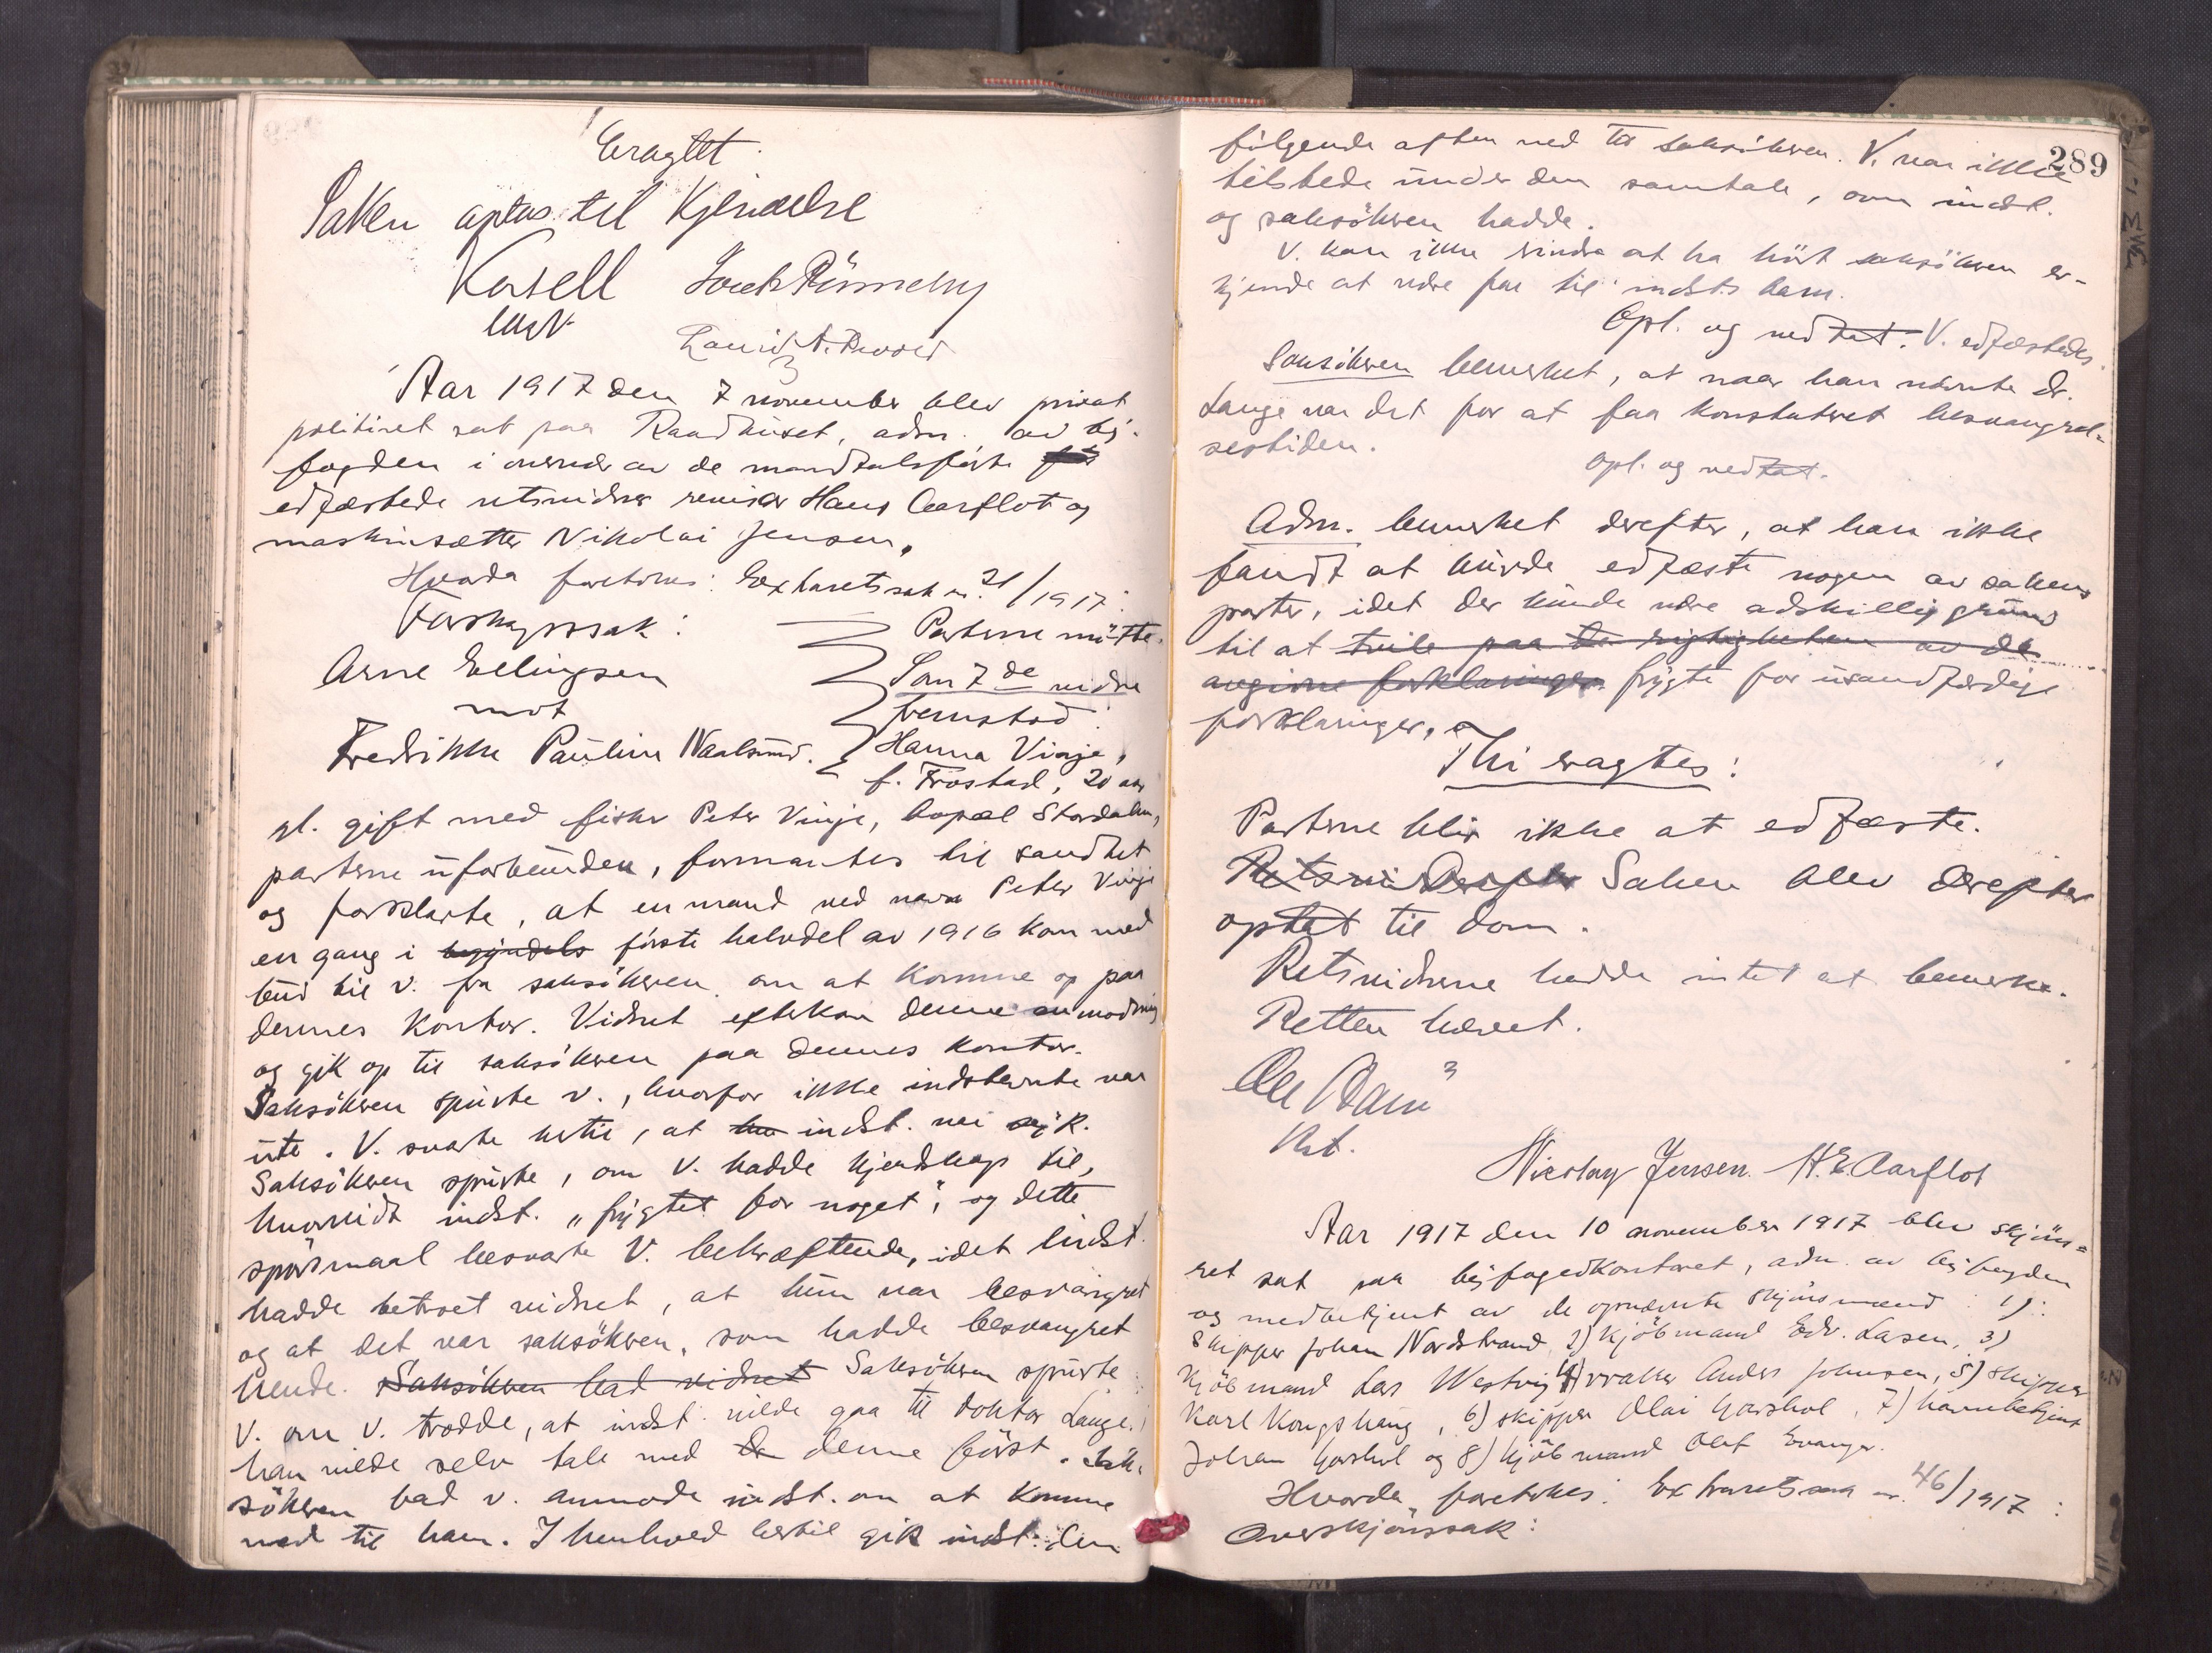 Eragtet.
Saken optas til Kjendelse
Kosell
Aar 1917 den 7 november blev privat
politiret sat paa Raadhuset, adm. av by-
fogden i overvær av de mandtalsførte
edfæstede retsvidner revisor Hans Aarflot og
maskinsætter Nikolai Jensen.
Hvorda foretokes: Extraretssak nr. 21/1917:
Farskapssak:
Arne Ellingsen
mot
Fredrikke Pauline Naalsund.
Parterne møtte.
Som 7de vidne
fremstod:
Hanna Vinje,
f. Frostad, 20 aar
gl. gift med fisker Peter Vinje, bopæl Stordalen,
parterne uforbunden, formantes til sandhet
og forklarte, at en mand ved navn Peter Vinje
en gang i begyndels første halvdel av 1916 kom med
bud til v. fra saksökeren om at komme op paa
dennes kontor. Vidnet efterkom denne anmodning
og gik op til saksökeren paa dennes kontor.
Saksökeren spurte v., hvorfor ikke indstevnte var
ute. V. svarte hertil, at hun indst. var syk.
Saksökeren spurte, om V. hadde kjendskap til,
hvorvidt indst. "frygtet for noget", og dette
spørsmaal besvarte V. bekræftende, idet indst.
hadde betroet vidnet, at hun var besvangret
og at det var saksökeren, som hadde besvangret
hende. Saksökeren bad vidnet Saksökeren spurte
V. om V. trodde, at indst. vilde gaa til doktor Lange.
han vilde selv tale med da denne først. Sak-
sökeren bad v. anmode indst. om at komme
ned til ham. I henhold hertil gik indst. den
289
følgende aften ned til saksökeren. V. var ikke
tilstede under den samtale, som indst.
og saksökeren hadde.
V. kan ikke erindre at ha hørt saksökeren er-
kjende at være far til indst.s barn.
Opl. og vedtat. V. edfæstedes.
Saksökeren bemerket, at naar han nævnte dr.
Lange var det for at faa konstateret besvangrel-
sestiden.
Opl. og vedtat.
Adm. bemerket derefter, at han ikke
fandt at burde edfæste nogen av sakens
parter, idet der kunde være adskillig grund
til at tvile paa rigtigheten av de
avgivne forklaringer frygte for usandfærdige
forklaringer,
Thi eragtes:
Parterne blir ikke at edfæste.
Retsvi Derefter Saken blev derefter
optat til dom.
Retsvidnerne hadde intet at bemerke.
Retten hævet.
Nicolay Jensen. H. E. Aarflot
Aar 1917 den 10 november 1917 blev skjøns-
ret sat paa byfogedkontoret, adm. av byfogden
og medbetjent av de opnævnte skjønsmænd: 1):
Skipper Johan Nordstrand, 2) kjøbmand Edv. Lasen, 3)
kjøbmand Lars Westvig, 4) vraker Anders Johnsen, 5) skipper
Karl Kongshaug, 6) skipper Olai Garshol, 7) havnebetjent
Johan Garshol og 8) kjøbmand Olaf Evanger.
Hvorda foretokes: Extraretssak nr. 46/1917:
Overskjønssak: